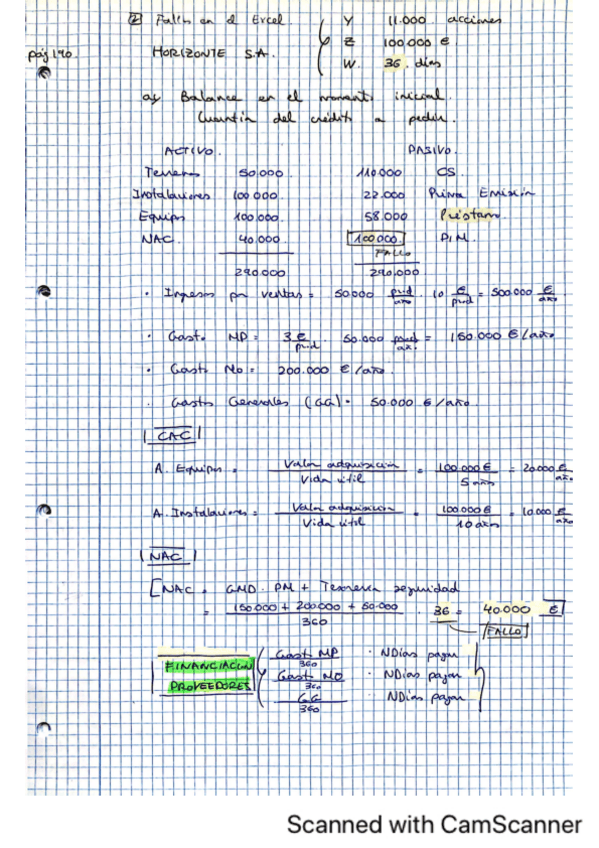 ② Fallos en el Excel
Y 11.000 acciones
Z 100.000 €
W. 36. días
pág 190
HORIZONTE S.A.
a) Balance en el momento inicial.
Cuantía del crédito a pedir.
ACTIVO. PASIVO.
Terrenos 50.000 110.000 CS.
Instalaciones 100.000 22.000 Prima Emisión
Equipos 100.000. 58.000 Préstamo.
NAC. 40.000 100.000. P.I.M.
FALLO
290.000 290.000
· Ingresos por ventas = 50.000 prod/año · 10 €/prod = 500.000 €/año
· Gasto MP = 3 €/prod. 50.000 prod/año = 150.000 €/año
· Gasto MO = 200.000 €/año.
. Gastos Generales (GG) = 50.000 €/año.
CAC
A. Equipos = Valor adquisición / Vida útil = 100.000 € / 5 años = 20.000 €/año
A. Instalaciones = Valor adquisición / Vida útil = 100.000 € / 10 años = 10.000 €/año
NAC
NAC = GMD · PM + Tesorería seguridad
= 150.000 + 200.000 + 50.000 / 360 · 36 = 40.000 €
FALLO
FINANCIACION PROVEEDORES
Gasto MP / 360 · NDías pagar
Gasto MO / 360 · NDías pagar
GG / 360 · NDías pagar
Scanned with CamScanner